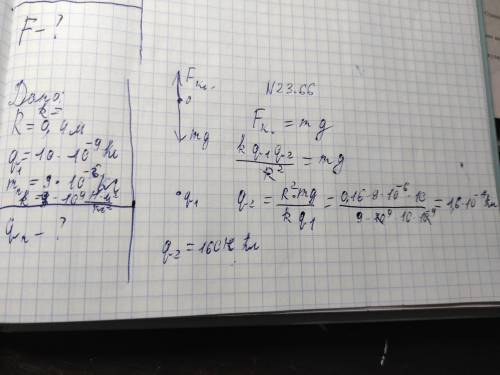 F - ?
Дано:
R = 0,4м
q₁ = 10 · 10⁻⁹ Кл
m = 9 · 10⁻⁶
k = 9 · 10⁹ Н·м²/Кл²
q₂ - ?
Fкл.
mg
· q₁
N23.66
Fк. = mg
k q₁ q₂ / R² = mg
q₂ = R² mg / k q₁ = 0,16 · 9 · 10⁻⁶ · 10 / 9 · 10⁹ · 10 · 10⁻⁹ = 1,6 · 10⁻⁷ Кл
q₂ = 160 н Кл